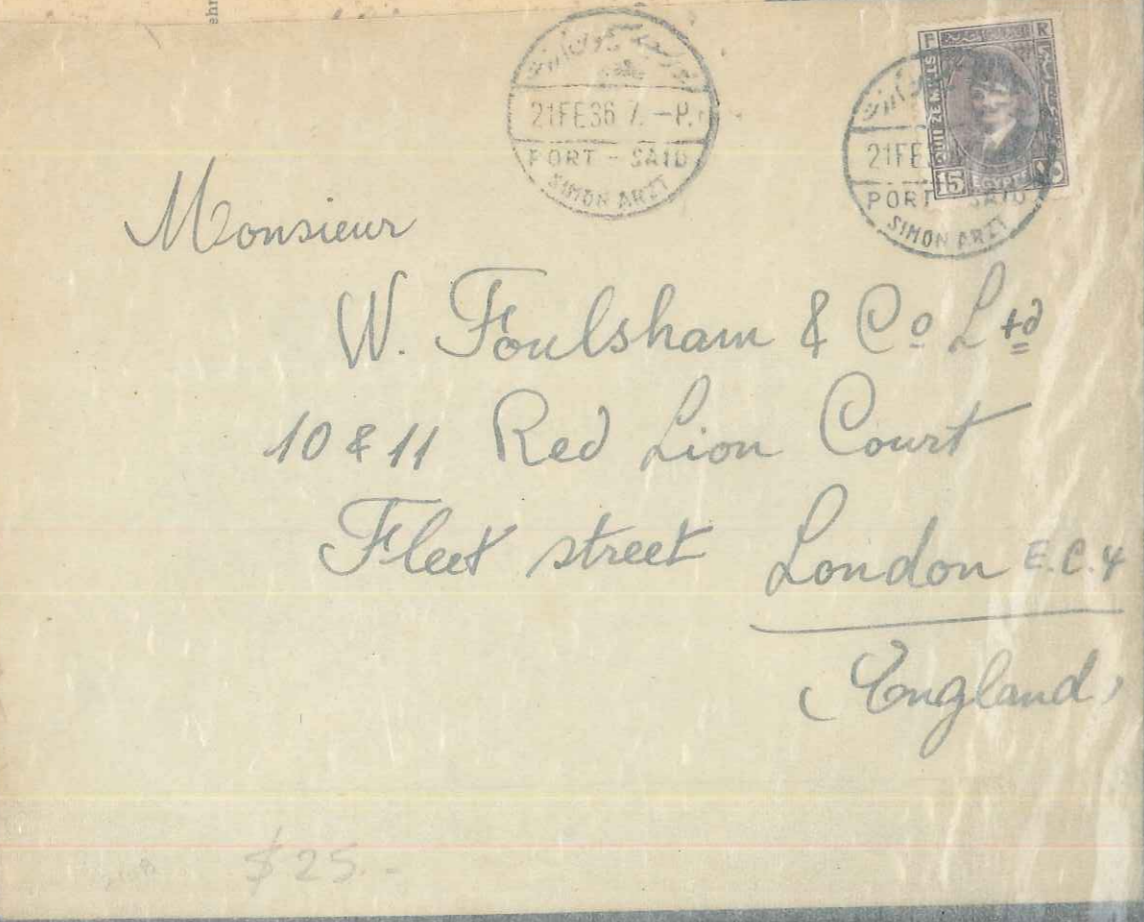 ehr
21FE36 7.-P.
PORT - SAID
SIMON ARZT
F R
15 EGYPTE
21FE
PORT SAID
SIMON ARZT
Monsieur
W. Foulsham & Co Ltd
10 & 11 Red Lion Court
Fleet street London E.C.4
(England)
$25.-